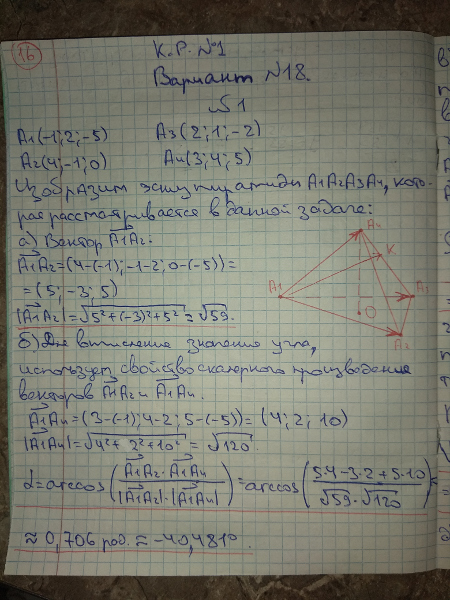 16
К.Р. №1
Вариант №18.
№1
A1(-1; 2; -5) A3(2; 1; -2)
A2(4; -1; 0) A4(3; 4; 5)
Изобразим эскиз пирамиды A1A2A3A4, кото-
рая рассматривается в данной задаче:
а) Вектор A1A2:
A1A2=(4-(-1); -1-2; 0-(-5))=
=(5; -3; 5)
|A1A2|=√5²+(-3)²+5² = √59.
A4
K
A1
A3
O
A2
б) Для вычисление значение угла,
использует свойство скалерного произведение
векторов A1A2 и A1A4.
A1A4=(3-(-1); 4-2; 5-(-5))= (4; 2; 10)
|A1A4|=√4²+2²+10² = √120
α=arccos(A1A2·A1A4/|A1A2|·|A1A4|)=arccos(5·4-3·2+5·10/√59·√120)≈
≈ 0,706 рад. ≈ -40,481°.